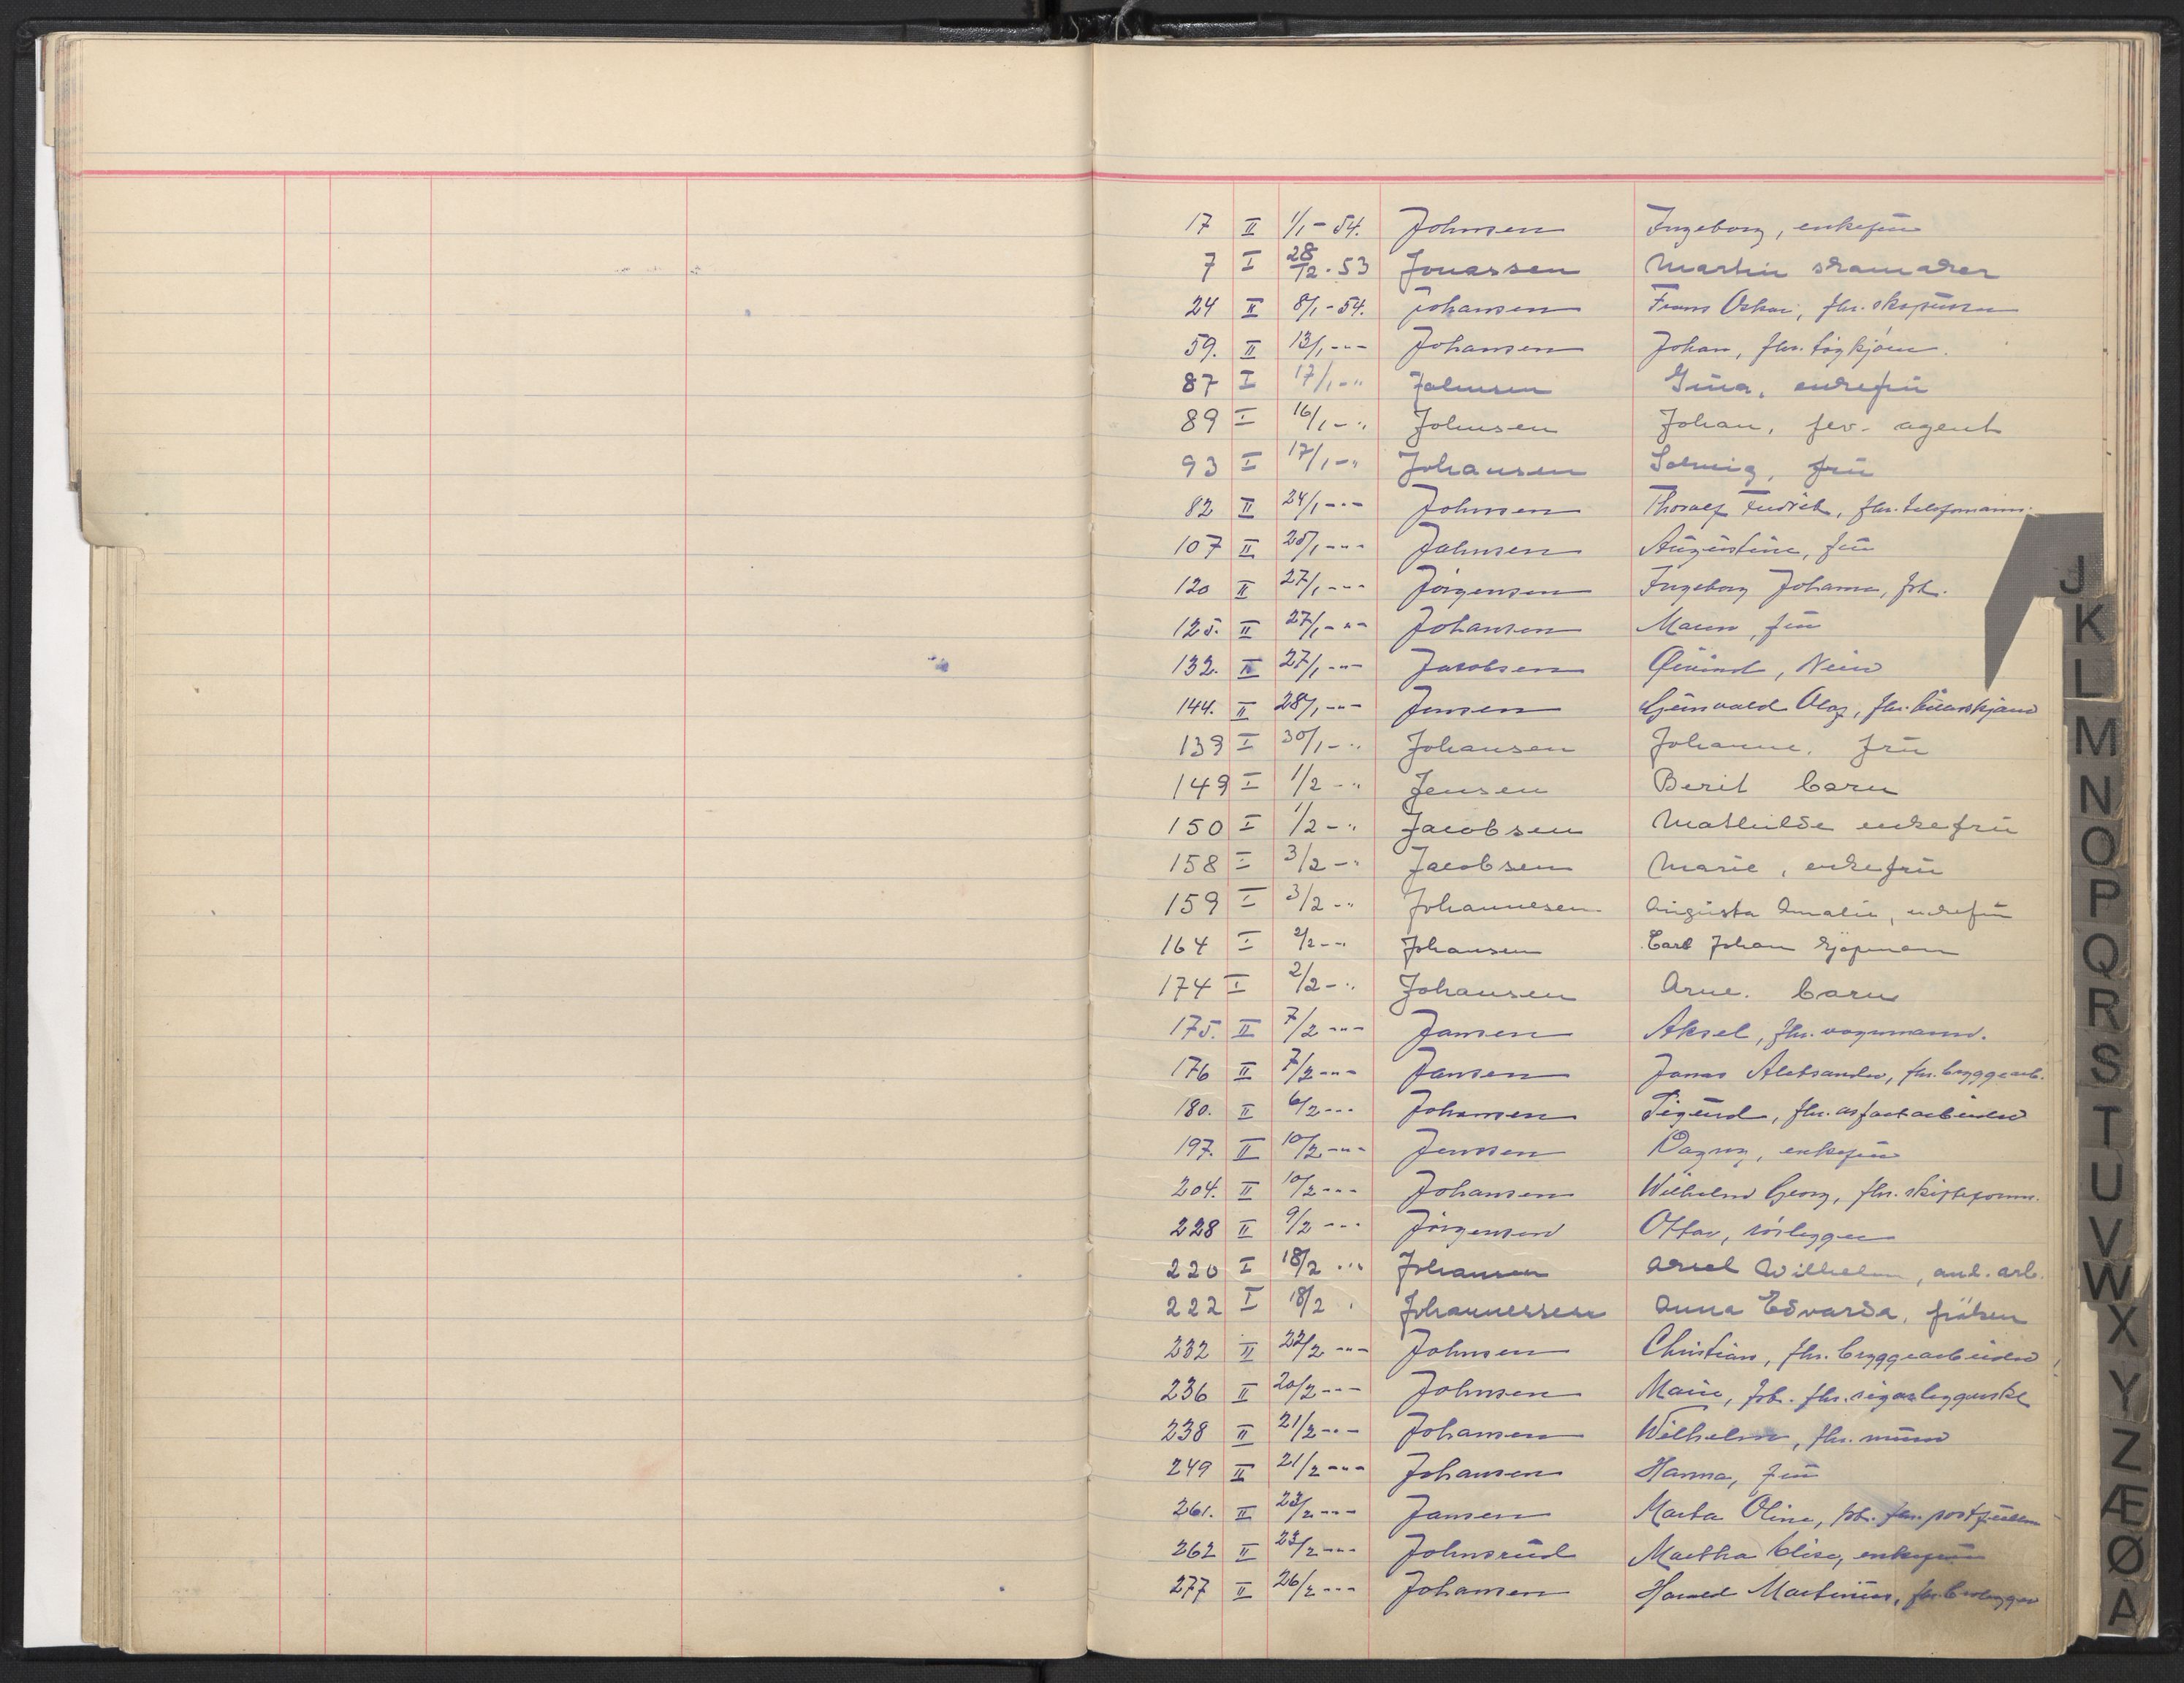 17 II 1/1 - 54. Johnsen Ingeborg, enkefru
7 I 28/12 - 53 Jonassen Martin skomaker
24 II 8/1 - 54. Johansen Frans Oskar, fhv.
59. II 13/1 - " - Johansen Johan, fhv.
87 I 17/1 - " Johnsen Gina, enkefru
89 I 16/1 - " Johnsen Johan, fhv. agent
93 I 17/1 - " Johansen Solveig, fru
82 II 24/1 - " - Johnsen Thoralf Fredrik, fhv. telefonmann.
107 II 25/1 - " - Johnsen Augustine, fru
120 II 27/1 - " - Jörgensen Ingeborg Johanna, frk.
125. II 27/1 - " - Johansen Maren, fru
132. II 27/1 - " - Jacobsen
144. II 28/1 - " - Jensen Olaf, fhv.
139 I 30/1 - " Johansen Johanne, fru
149 I 1/2 - " Jensen Berit barn
150 I 1/2 - " Jacobsen Mathilde enkefru
158 I 3/2 - " Jacobsen Marie, enkefru
159 I 3/2 - " Johannesen Augusta Amalie, enkefru
164 I 2/2 - " Johansen Carl Johan sjöman
174 I 2/2 - " Johansen Arne. barn
175. II 7/2 - " - Jansen Aksel, fhv. vognmann.
176 II 7/2 - " - Jansen Aleksander, fhv. bryggearb.
180. II 6/2 - " - Johansen Sigurd, fhv. asfaltarbeider
197. II 10/2 - " - Jenssen Dagny, enkefru
204. II 10/2 - " - Johansen Wilhelm Georg, fhv. skifteform.
228 II 9/2 - " - Jörgensen Ottar, rörlegger
220 I 18/2 - " Johansen Aksel Wilhelm, anl. arb.
222 I 18/2 " Johannessen Anna Edvarda, fröken
232 II 22/2 - " - Johnsen Christian, fhv. bryggearbeider
236 II 20/2 - " - Johnsen Marie, frk. fhv.
238 II 21/2 - " - Johansen Wilhelm, fhv. murer
249 II 21/2 - " - Johansen Hanna, fru
261. II 23/2 - " - Jansen Marta Oline, frk. fhv.
262 II 23/2 - " - Johnsrud Martha Elise, enkefru
277 II 26/2 - " - Johansen Harald Martinius, fhv. brolegger
J
K
L
M
N
O
P
Q
R
S
T
U
V
W
X
Y
Z
Æ
Ø
A